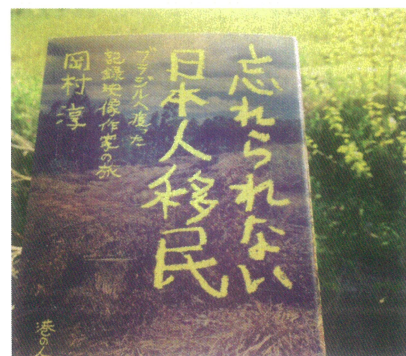 忘れられない
日本人移民
ブラジルへ渡った
記録映像作家の旅
岡村淳
港の人